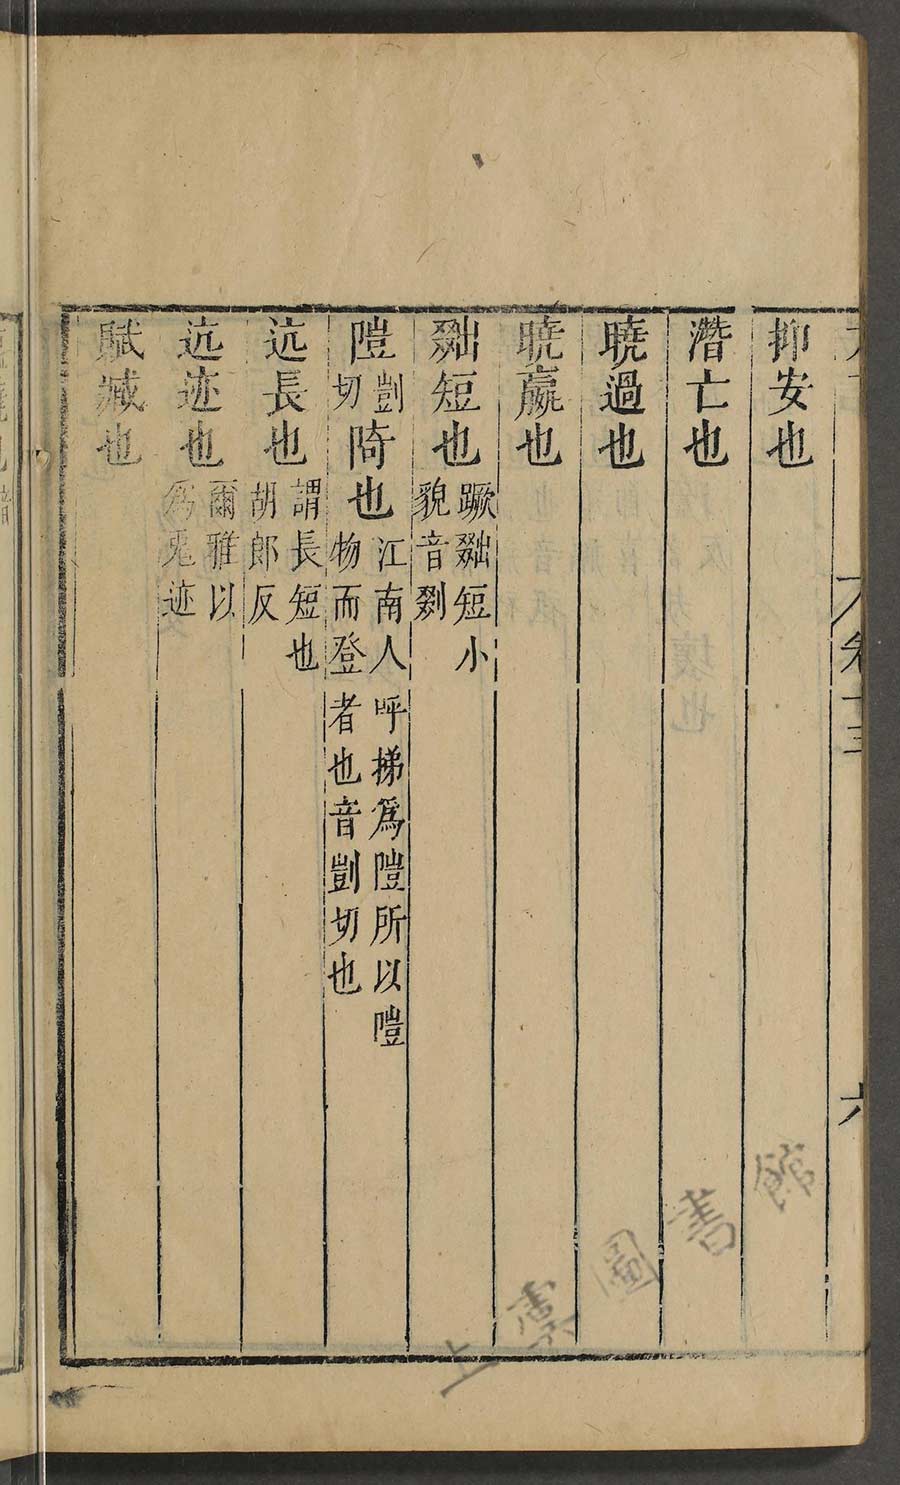 抑安也
潛亡也
曉過也
曉嬴也
䫎短也 蹶䫎短小貌音剟
隑剴切陭也 江南人呼梯爲隑所以隑物而登者也音剴切也
远長也 謂長短也胡郎反
远迹也 爾雅以爲兎迹
賦臧也
卷十三
六
上虞圖書館